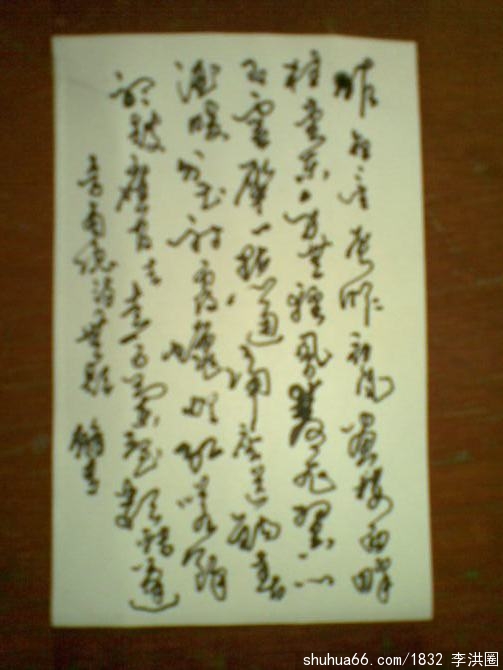 昨夜星辰昨夜風畫樓西畔
桂堂東身無彩鳳雙飛翼心
有靈犀一點通隔座送鈎春
酒暖分曹射覆蠟燈紅嗟余
聽鼓應官去走馬蘭臺類轉蓬
李商隱詩無題
shuhua66.com/1832 李洪圈